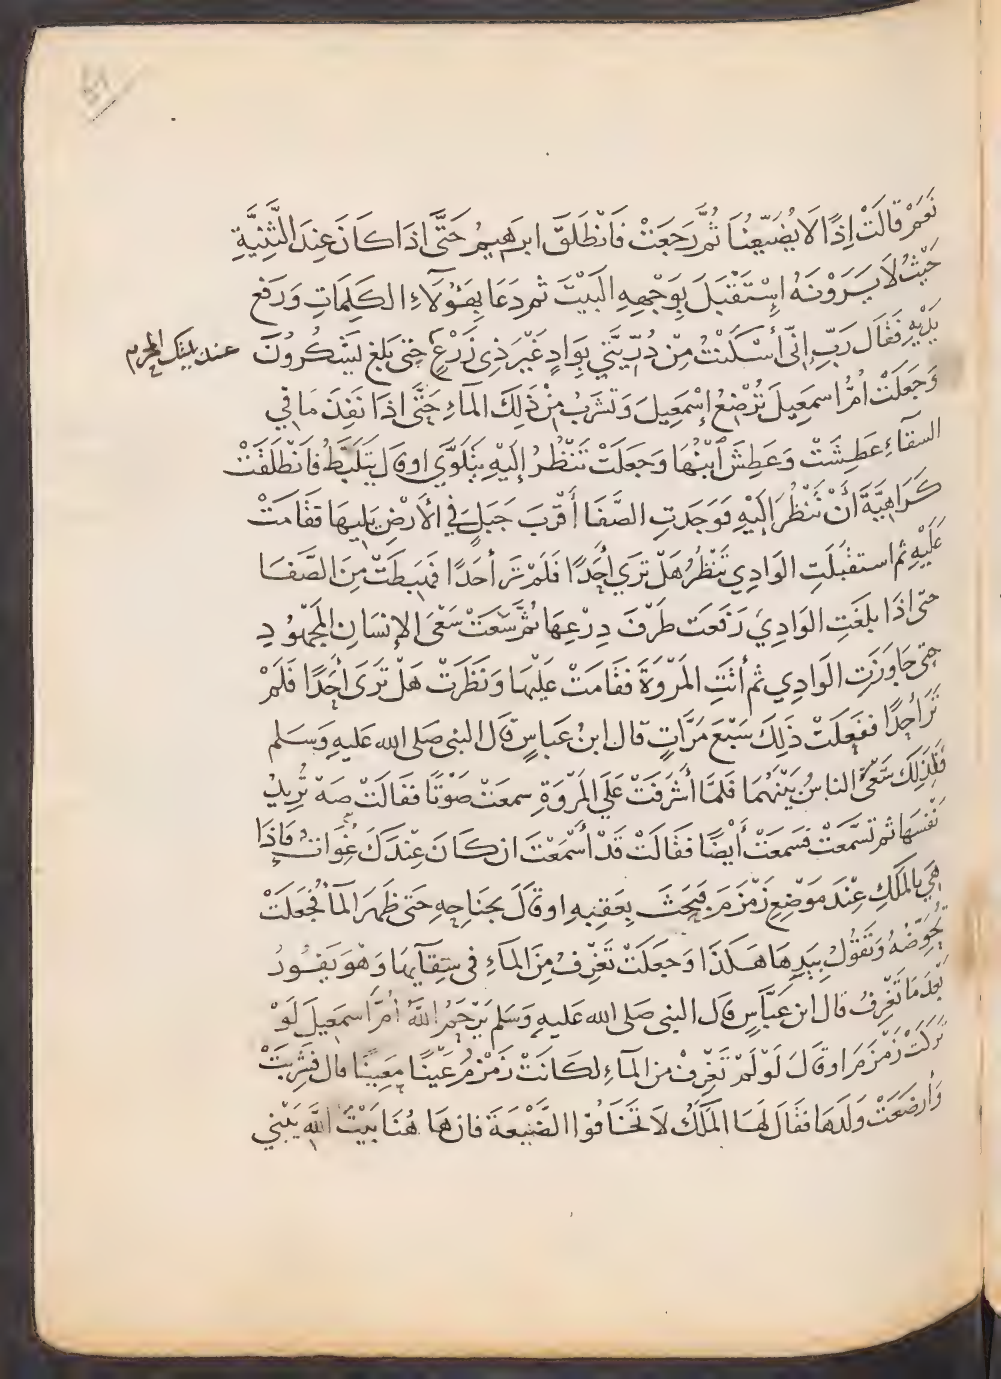 نَعَمْ قَالَتْ إِذًا لَا يُضَيِّعُنَا ثُمَّ رَجَعَتْ فَانْطَلَقَ ابرهيمُ حَتَّى اذَا كَانَ عِندَ الثَّنِيَّةِ
حَيْثُ لَا يَرَوْنَهُ إِسْتَقْبَلَ بِوَجْهِهِ البَيْتَ ثم دَعَا بِهَؤُلَآءِ الكَلِمَاتِ وَرَفع
يَدَيْهِ فَقَال رَبِّ إِنِّى أَسْكَنْتُ مِنْ ذُرِّيَّتِي بِوَادٍ غَيْرِ ذِى زَرْعٍ حتى بَلغ يَشْكُرُونَ
عند بيتك المحرم
وَجَعَلَتْ أُمُّ اسمعِيلَ تُرْضِعُ إِسْمَعِيلَ وَتَشرَبُ مِنْ ذَلِكَ المَآءِ حَتَّى اذَا نَفِدَ مَا في
السقآءِ عَطِشَتْ وَعَطِشَ ابْنُهَا وَجَعَلَتْ تَنْظُرُ إِلَيْهِ يَتَلَوَّي اوقال يَتَلَبَّطُ فَانْطَلَقَتْ
كَرَاهِيَّةَ أَنْ تَنْظُرَ إِلَيْهِ فَوَجَدَتِ الصَّفَا أَقْرَبَ جَبَلٍ فِي الأَرْضِ يَلِيهَا فَقَامَتْ
عَلَيْهِ ثم استقبَلَتِ الوَادِي تَنْظُرُ هَلْ تَرَي أَحَدًا فَلَمْ تَرَ أَحَدًا فَهَبَطَتْ مِنَ الصَّفَا
حتى اذَا بلغَتِ الوَادِيَ رَفَعَت طَرَفَ دِرْعِهَا ثُمَّ سَعَتْ سَعْىَ الإنسَانِ المَجْهُودِ
حتى جَاوَزَتِ الوَادِي ثم أَتَتِ المَرْوَةَ فَقَامَتْ عَلَيْهَا وَنَظَرَتْ هَلْ تَرَى أَحَدًا فَلَمْ
تَرَ أَحَدًا فَفَعَلَتْ ذَلِكَ سَبْعَ مَرَّاتٍ قال ابنُ عَبَاسٍ قال النبى صَلى الله عَليهِ وَسَلم
فَلِذَلِكَ سَعْىُ الناسُ بَيْنَهُمَا فَلَمَّا أَشْرَفَتْ عَلَي المَرْوَةِ سمعَتْ صَوْتًا فقَالَتْ صَهْ تُرِيدُ
نَفْسَهَا ثم تَسَمَّعَتْ فَسَمعَتْ أَيْضًا فَقَالَتْ قَدْ أَسْمَعْتَ ان كَانَ عِنْدَكَ غُِوَاثٌ فَإِذَا
هِيَ بِالمَلَكِ عِنْدَ مَوْضِعِ زَمْزَمَ فَبَحَثَ بِعَقِبهِ اوقال بجَنَاحِهِ حَتى ظَهَرَ المَآءُ فَجَعَلَتْ
تُحَوِّضُهُ وَتَقُولُ بِيَدِهَا هَكَذَا وَجَعَلَتْ تَغْرِفُ مِنَ المَاءِ فى سِقَآئِهَا وَهْوَ يَفُورُ
بَعْدَ مَا تَغْرِفُ قال ابن عَبَّاسٍ قال النبى صَلى الله عَليهِ وَسَلم يَرْحَمُ اللَّهُ أُمَّ اسمَعِيلَ لَوْ
تَرَكَتْ زَمْزَمَ اوقَالَ لَوْ لَمْ تَغْرِفْ مِنَ المَآءِ لكَانَتْ زَمْزمُ عَيْنًا مَعِينًا قال فَشَرِبَتْ
وَأَرضَعَتْ وَلَدَهَا فَقَالَ لَهَا المَلَكُ لَا تَخَافُوا الضَّيْعَةَ فان هَا هُنَا بَيْتَ اللَّهِ يَبْنِي